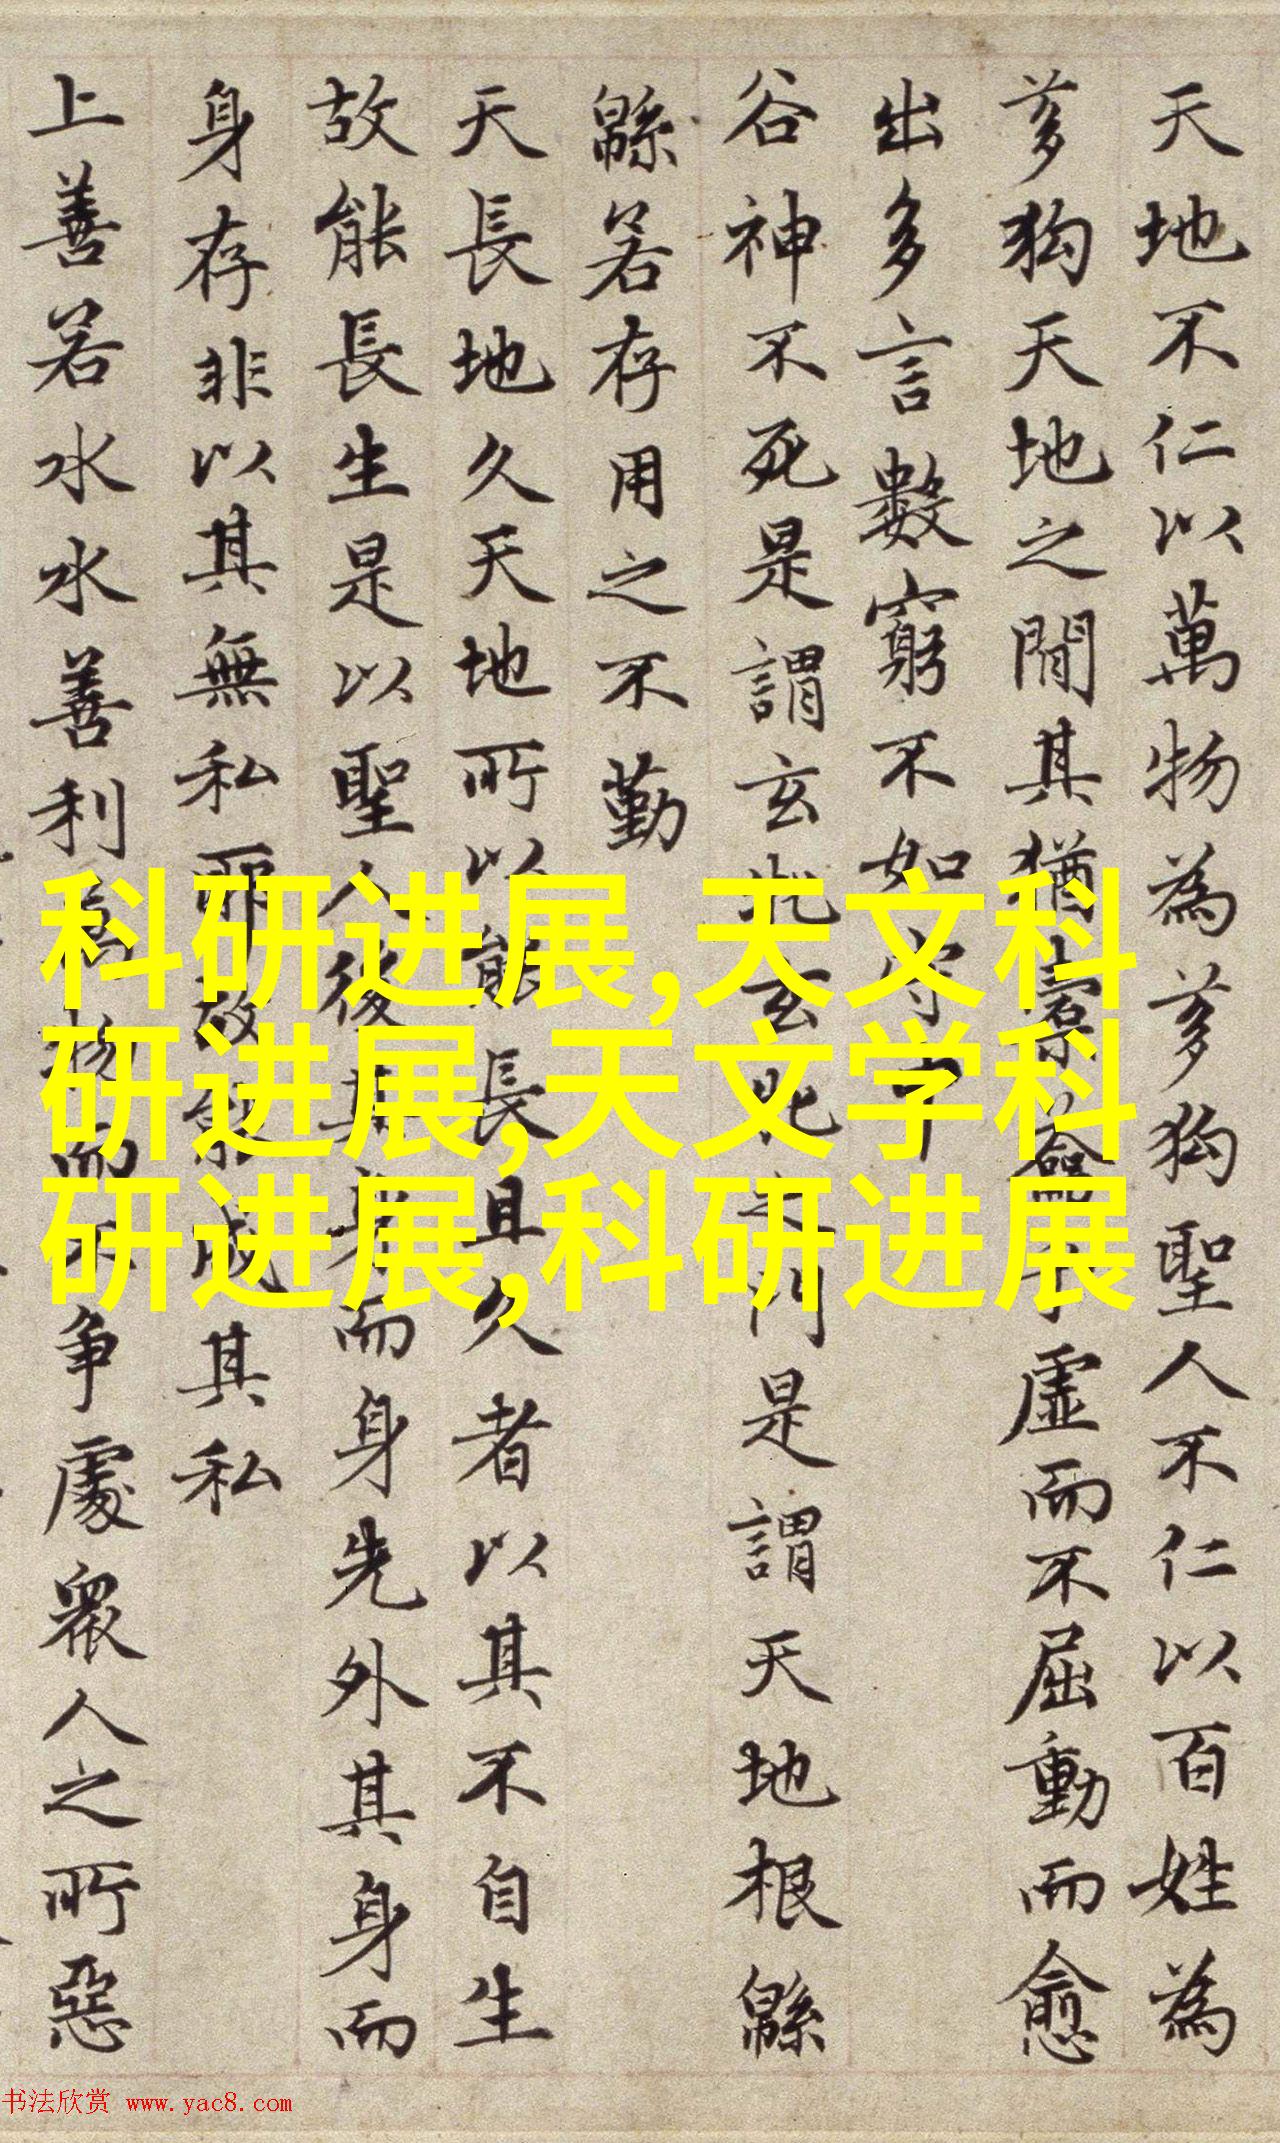 天地不仁以萬物為芻狗聖人不仁以百姓為
芻狗天地之間其猶橐籥乎虛而不屈動而愈
出多言數窮不如守中
谷神不死是謂玄牝玄牝之門是謂天地根緜
緜若存用之不勤
天長地久天地所以能長且久者以其不自生
故能長生是以聖人後其身而身先外其身而
身存非以其無私耶故能成其私
上善若水水善利萬物而不争處衆人之所惡
科研进展,天文科
研进展,天文学科
研进展,科研进展
书法欣赏 www.yac8.com